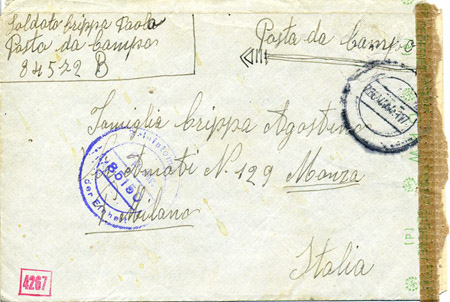 Soldato Crippa Paolo
Posta da Campo
84522 B
Posta da Campo
Famiglia Crippa Agostino
N. 129 Monza
Milano
Italia
der Einhei
4267